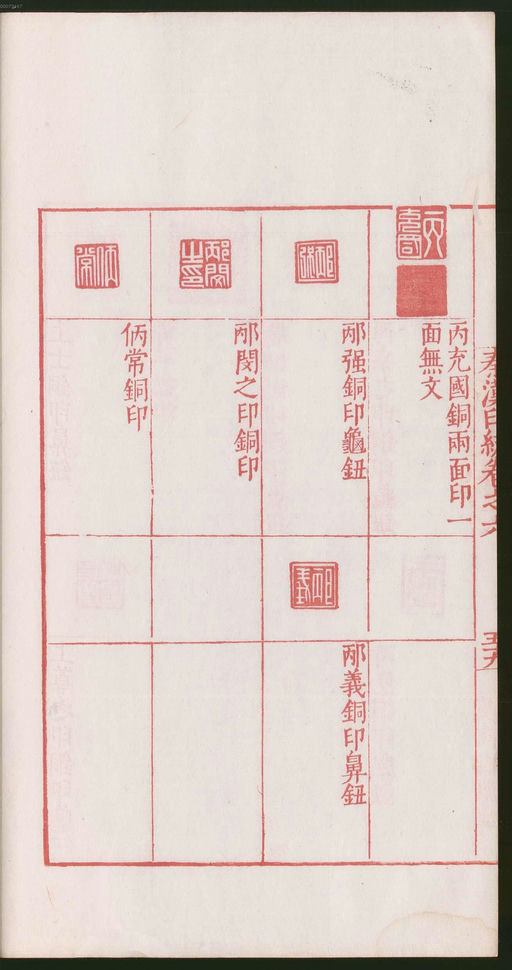 秦漢印統卷之六
五九
丙充國銅兩面印一
面無文
邴强銅印龜鈕
邴義銅印鼻鈕
邴閔之印銅印
怲常銅印